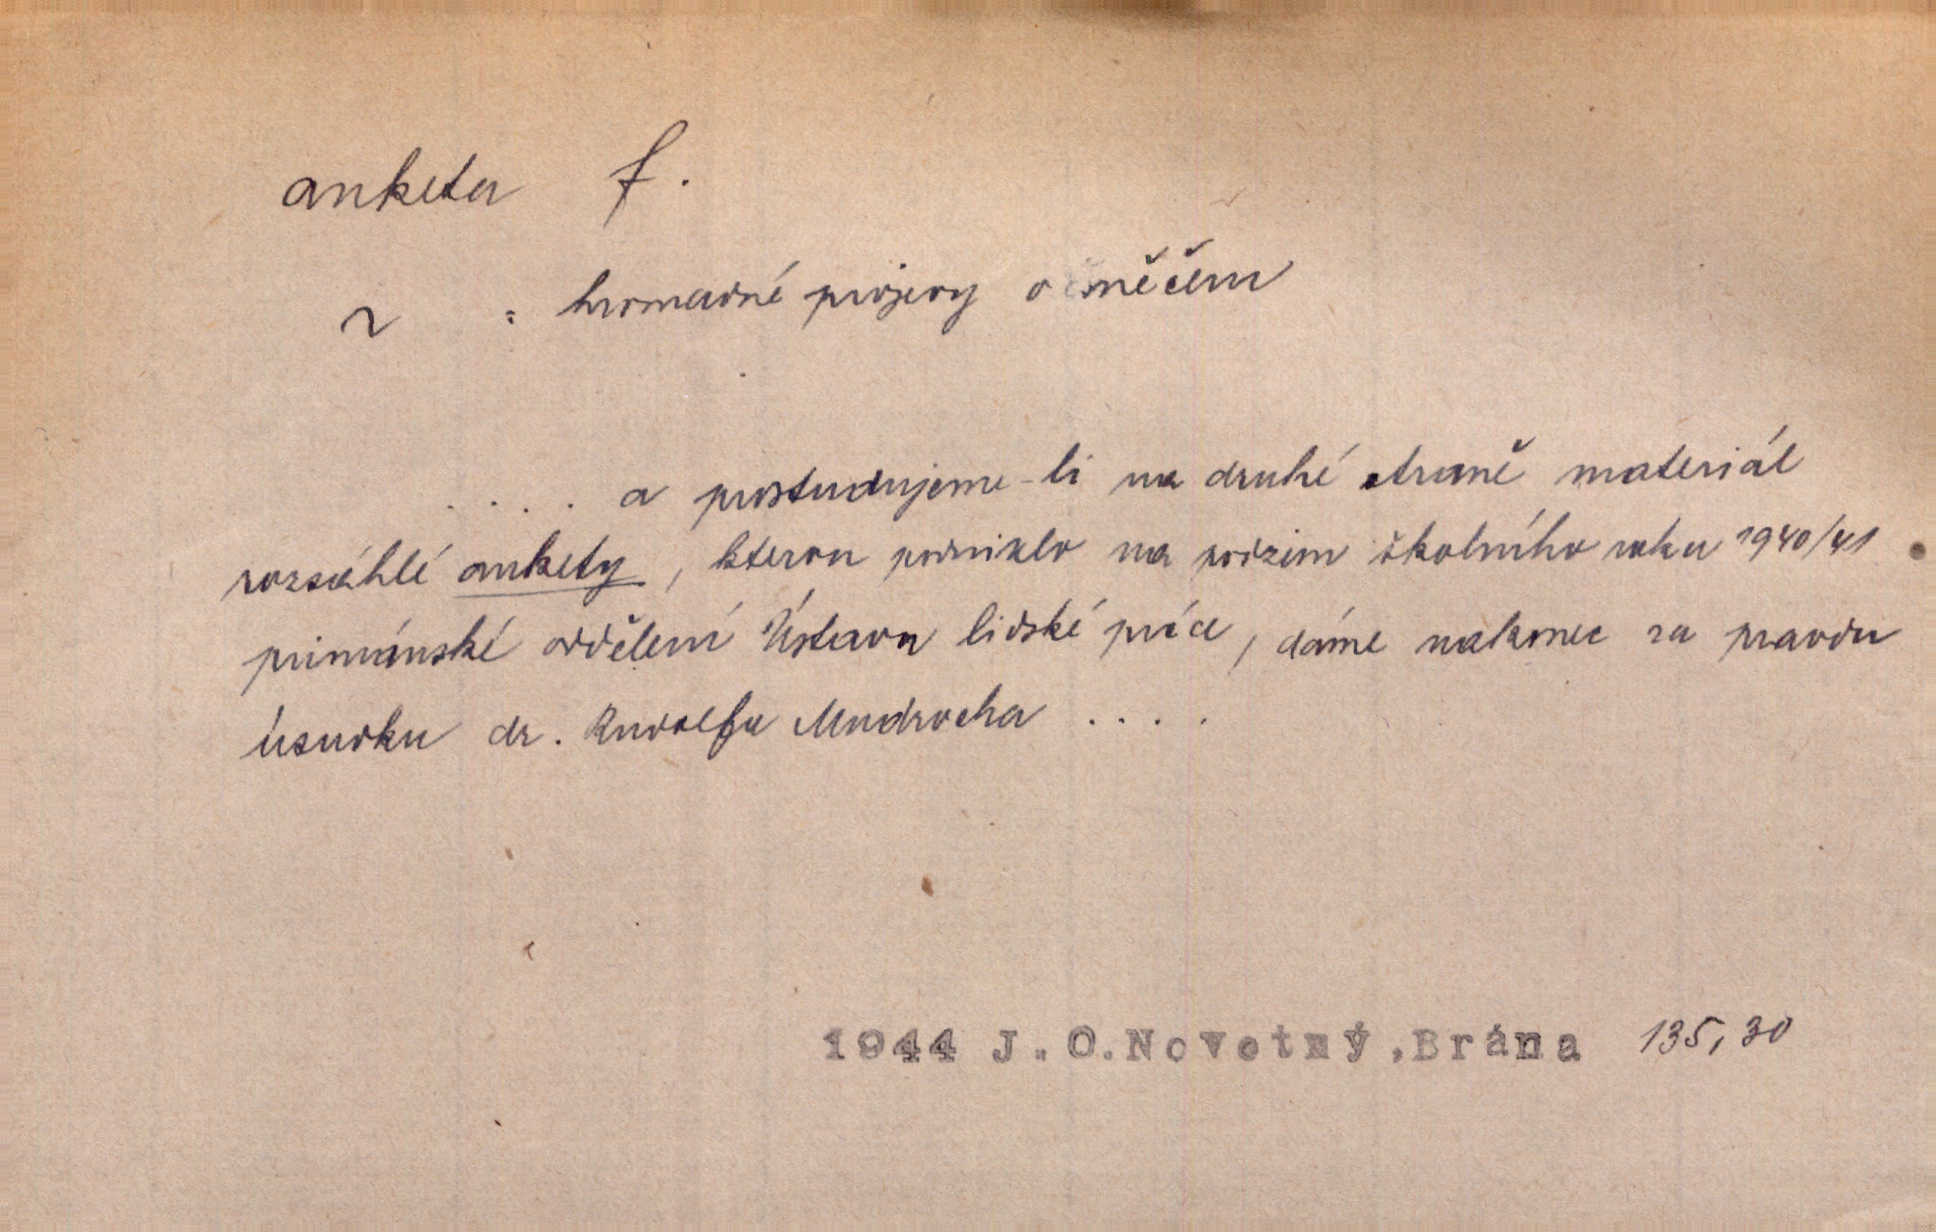 anketa f.
~ = hromadné projevy o něčem
.... a prostudujeme-li na druhé straně materiál
rozsáhlé ankety, kterou podniklo na podzim školního roku 1940/41
primánské oddělení Ústavu lidské práce, dáme nakonec za pravdu
úsudku dr. Rudolfa Mudrocha ....
1944 J.O.Novotný,Brána 135,30